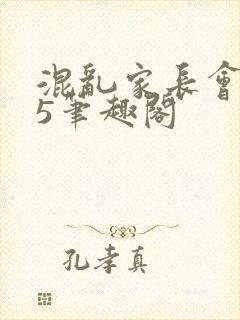 混亂家長會
5筆趣閣
孔孝真